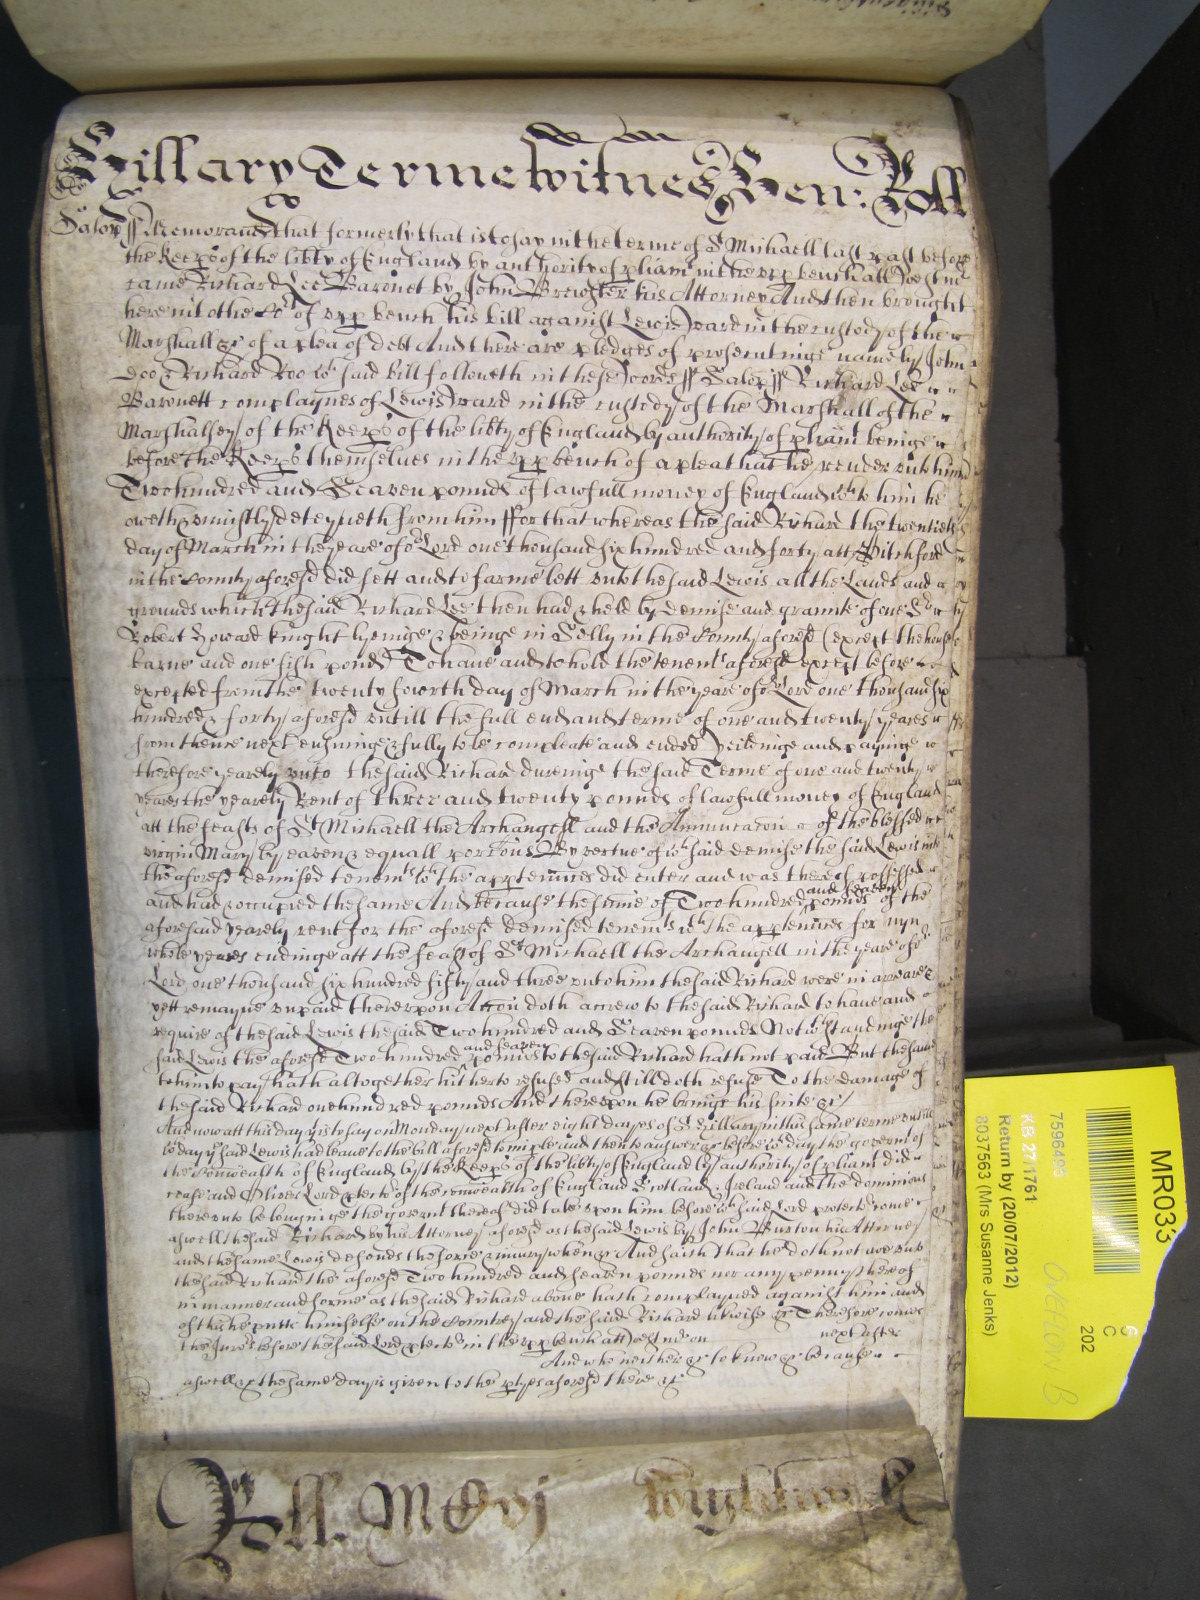 Hillary Terme witnes Hen: Roll
Salop ss Memorand that formerly that is to say in the terme of St Michaell last past before
the Keeps of the libty of England by authority of pliam in the upp bench att Westm
came Richard Lee Baronet by John Brewster his Attorney And then brought
here into the Cot of upp bench his bill against Lewis Ward in the custody of the
Marshall &c of a plea of debt And there are pledges of prosecutinge namely John
Doo & Richard Roo wch said bill followeth in these words ss Salop ss Richard Lee
Baronett complaynes of Lewis Ward in the custody of the Marshall of the
Marshalsey of the Keeps of the libty of England by authority of pliamt beinge
before the Keeps themselues in the upp bench of a plea that he render unto him
Two hundred and Seaven pounds of lawfull money of England wch to him he
oweth & uniustly deteyneth from him ffor that whereas the said Richard the twentieth
day of March in the yeare of or Lord one thousand six hundred and forty att Pitchford
in the County aforesd did sett and to farme lett unto the said Lewis all the Lands and
grounds which the said Richard Lee then had & held by demise and graunte of one Sr
Robert Howard knight lyeinge & beinge in Selly in the County aforesd (except the house
barne and one fish pond) To haue and to hold the tenemts aforesd except before
excepted from the twenty fowrth day of March in the yeare of or Lord one thousand six
hundred & forty aforesd untill the full end and terme of one and twenty yeares
from thence next ensuinge & fully to be compleate and ended Yeildinge and payinge
therefore yearely unto the said Richard dureinge the said Terme of one and twenty
yeares the yearely Rent of three and twenty pounds of lawfull money of England
att the feasts of St Michaell the Archangell and the Annuncacon of the blessed
virgin Mary by eaven & equall porcons By vertue of wch said demise the said Lewis into
the aforesd demised tenemts wth the apptennces did enter and was thereof possessed
and had & occupied the same And because the summe of Two hundred and seaven pounds of the
aforesaid yearely rent for the aforesd demised tenemts wth the apptennces for nyn
whole yeares endinge att the feast of St Michaell the Archangell in the yeare of or
Lord one thousand six hundred fifty and three unto him the said Richard were in arreare &
yett remayne unpaid thereupon Accon doth accrew to the said Richard to haue and
require of the said Lewis the said Two hundred and Seaven pounds Notwthstandinge the
said Lewis the aforesd Two hundred and seaven pounds to the said Richard hath not paid But the same
to him to pay hath altogether hitherto refused and still doth refuse To the damage of
the said Richard one hundred pounds And thereupon he brings his suite &c
And now att this day yt is to say on Monday next after eight dayes of St Hillary in this same terme untill
wch day ye said Lewis had leaue to the bill aforesd to imple and then to answer &c before wch day the govermt of
the Comwealth of England by the Keeps of the libty of England by authority of pliamt did
cease and Oliver Lord ptector of the comwealth of England Scotland & Ireland and the dominions
thereunto belonginge the govermt thereof did take upon him before wch said Lord protector come
aswell the said Richard by his Attorney aforesd as the said Lewis by John Burton his Attorney
and the same Lewis defends the force & iniury when &c And saith that he doth not owe unto
the said Richard the aforesd Two hundred and seaven pounds nor any penny thereof
in manner and forme as the said Richard aboue hath complayned against him and
of this he putts himselfe on the Countrey and the said Richard likwise &c Therefore comes
the Jurors before the said Lord ptector in the upp bench att Westm on next after
And who neither &c to know &c because
aswell &c the same day is given to the ptyes aforesd there &c
Roll. M Dvj Wightwick
MR033
C
202
7596495
KB 27/1761
Return by (20/07/2012)
8037563 (Mrs Susanne Jenks)
OVERTON B